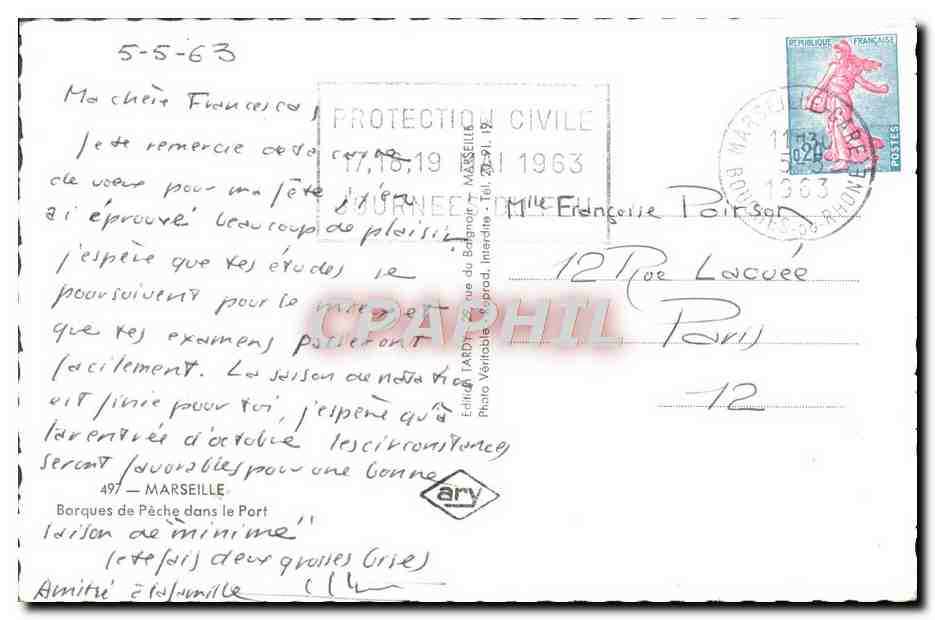 5-5-63
Ma chère Francesca,
je te remercie de ta carte
de voeux pour ma fête j'en
ai éprouvé beaucoup de plaisir,
j'espère que tes études se
poursuivent pour le mieux et
que tes examens passeront
facilement. La saison de natation
est finie pour toi, j'espère qu'à
la rentrée d'octobre les circonstances
seront favorables pour une bonne
497 — MARSEILLE
Barques de Pêche dans le Port
saison de "minime"
je te fais deux grosses bises
Amitié à la famille
PROTECTION CIVILE
17,18,19 MAI 1963
JOURNEES D'
Edition TARDY rue du Baignoir - MARSEILLE
Photo Véritable Reprod. Interdite - Tél. 20.91.19
ary
REPUBLIQUE FRANÇAISE
0,20
POSTES
MARSEILLE GARE
1963
BOUCHES-DU-RHONE
Mlle Françoise Poirson
12 Rue Lacuée
Paris
12
CPAPHIL